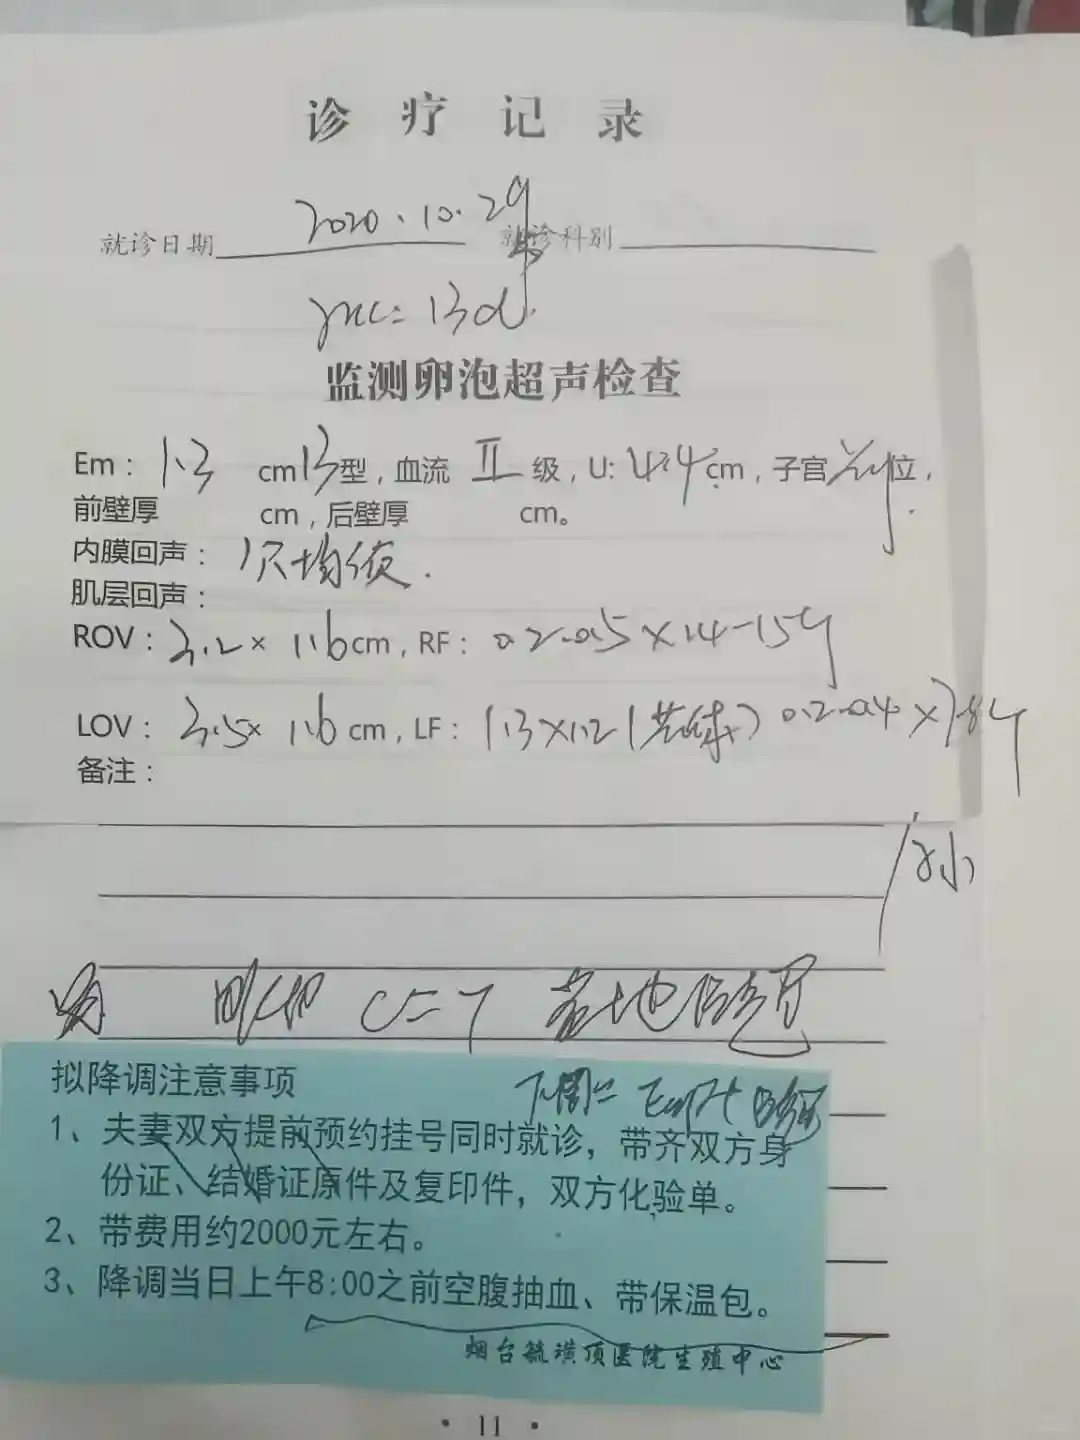 诊疗记录
就诊日期 2020.10.29 就诊科别
mc=13d.
监测卵泡超声检查
Em: 1.3 cm 13型,血流 Ⅱ 级,U: 4.4cm,子宫 位,
前壁厚 cm,后壁厚 cm。
内膜回声: 欠均质.
肌层回声:
ROV: 3.2× 1.6cm,RF: 0.2-0.5×14-15个
LOV: 3.5× 1.6cm,LF: 1.3×1.2 0.2-0.4×7-8个
备注:
拟降调注意事项
1、夫妻双方提前预约挂号同时就诊,带齐双方身
份证、结婚证原件及复印件,双方化验单。
2、带费用约2000元左右。
3、降调当日上午8:00之前空腹抽血、带保温包。
烟台毓璜顶医院生殖中心
· 11 ·